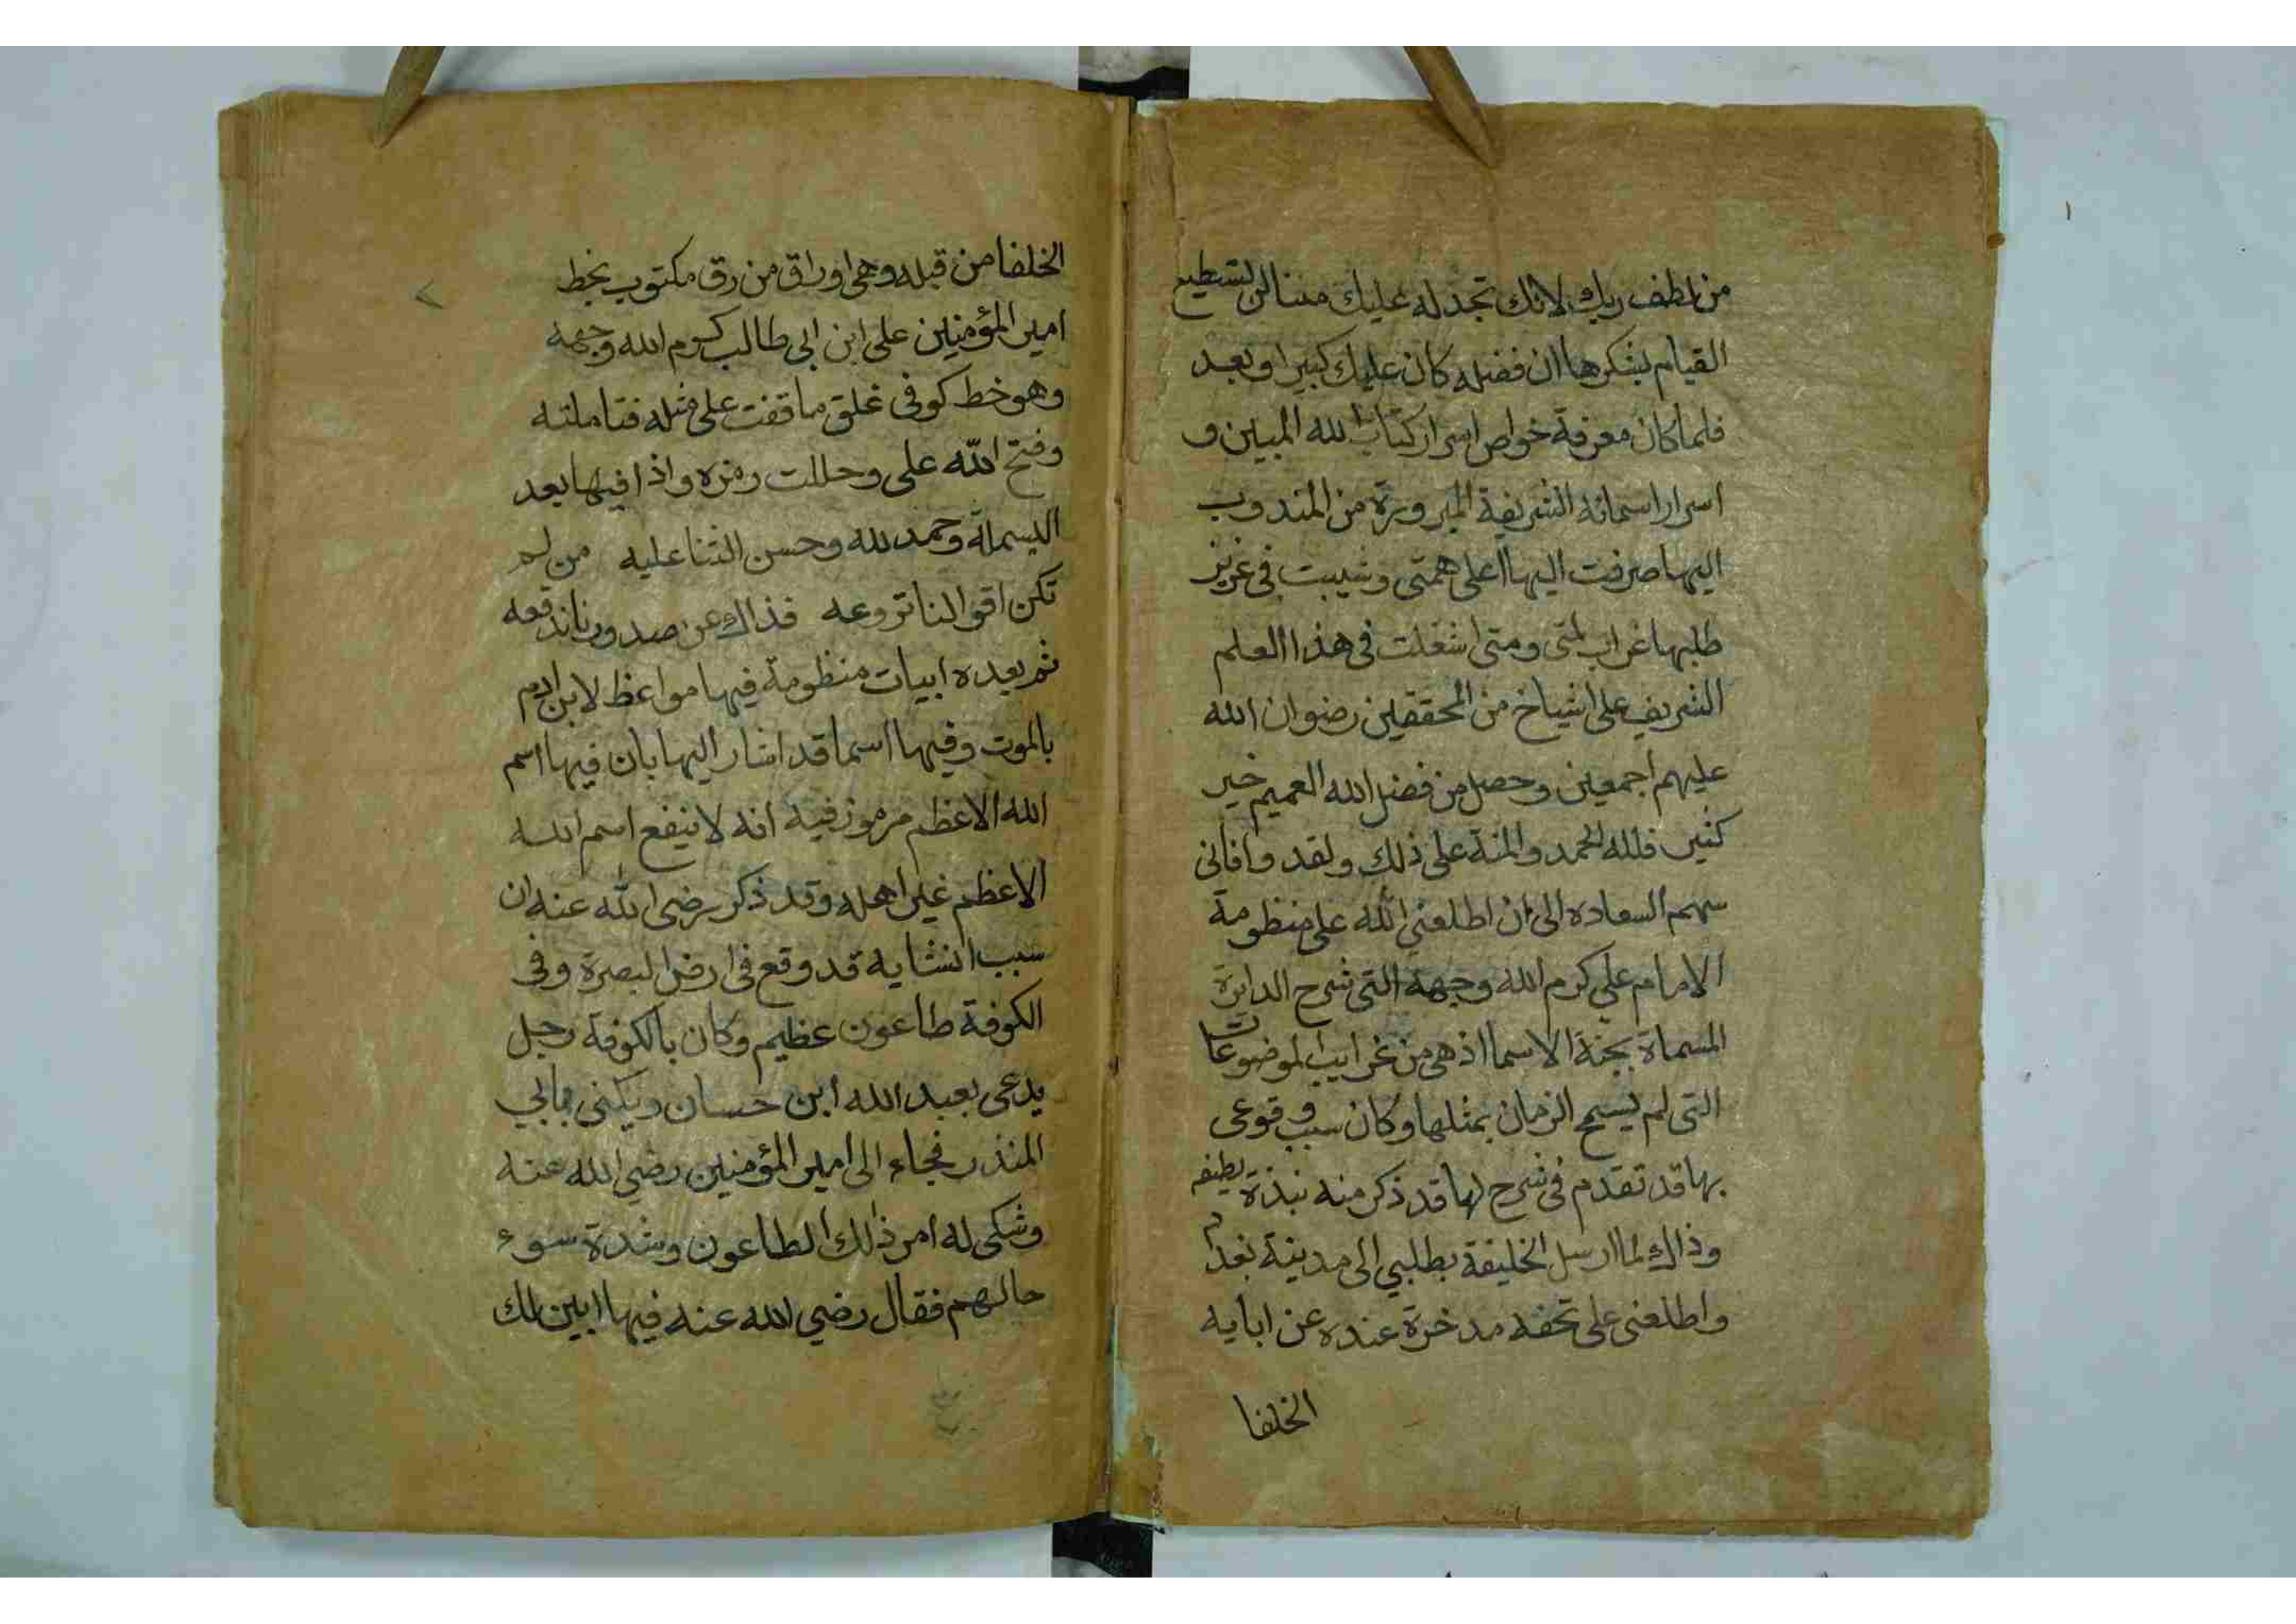 من لطف ربك لانك تجد له عليك مننا لن تستطيع
القيام بشكرها ان فضله كان عليك كبيرا وبعد
فلما كان معرفة خواص اسرار كتاب الله المبين و
اسرار اسمائه الشريفة المبرورة من المندوب
اليها صرفت اليها اعلى همتى وشيبت فى عزيز
طلبها غراب لمتى ومتى اشغلت فى هذا العلم
الشريف على اشياخ من المحققين رضوان الله
عليهم اجمعين وحصل من فضل الله العميم خير
كثير فلله الحمد والمنة على ذلك ولقد وافانى
سهم السعاده الى ان اطلعنى الله على منظومة
الامام علي كرم الله وجهه التى شرح الدايرة
المسماة بجنة الاسما اذ هى من غرايب الموضوعات
التى لم يسمح الزمان بمثلها وكان سبب وقوعى
بها قد تقدم فى شرح لها قد ذكر منه نبذة لطيفه
وذاك لما ارسل الخليفة بطلبي الى مدينة بغدا
واطلعنى على تحفه مدخرة عنده عن ابايه
الخلفا
الخلفا من قبله وهى اوراق من رق مكتوب بخط
امير المؤمنين على ابن ابى طالب كرم الله وجهه
وهو خط كوفى غلق ما وقفت على مثله فتاملته
وفتح الله على وحللت رمزه واذا فيها بعد
البسملة وحمد لله وحسن الثنا عليه من لم
تكن اقوالنا تروعه فذاك عن صدورنا ندفعه
ثم بعده ابيات منظومة فيها مواعظ لابن ادم
بالموت وفيها اسما قد اشار اليها بان فيها اسم
الله الاعظم مرموز فيه انه لا ينفع اسم الله
الاعظم غير اهله وقد ذكر رضى الله عنه ان
سبب انشايه قد وقع فى ارض البصرة وفى
الكوفة طاعون عظيم وكان بالكوفة رجل
يدعى بعبد الله ابن حسان ويكنى بابي
المنذر فجاء الى امير المؤمنين رضي الله عنه
وشكى له امر ذلك الطاعون وشدة سوء
حالهم فقال رضي الله عنه فيها ابين لك